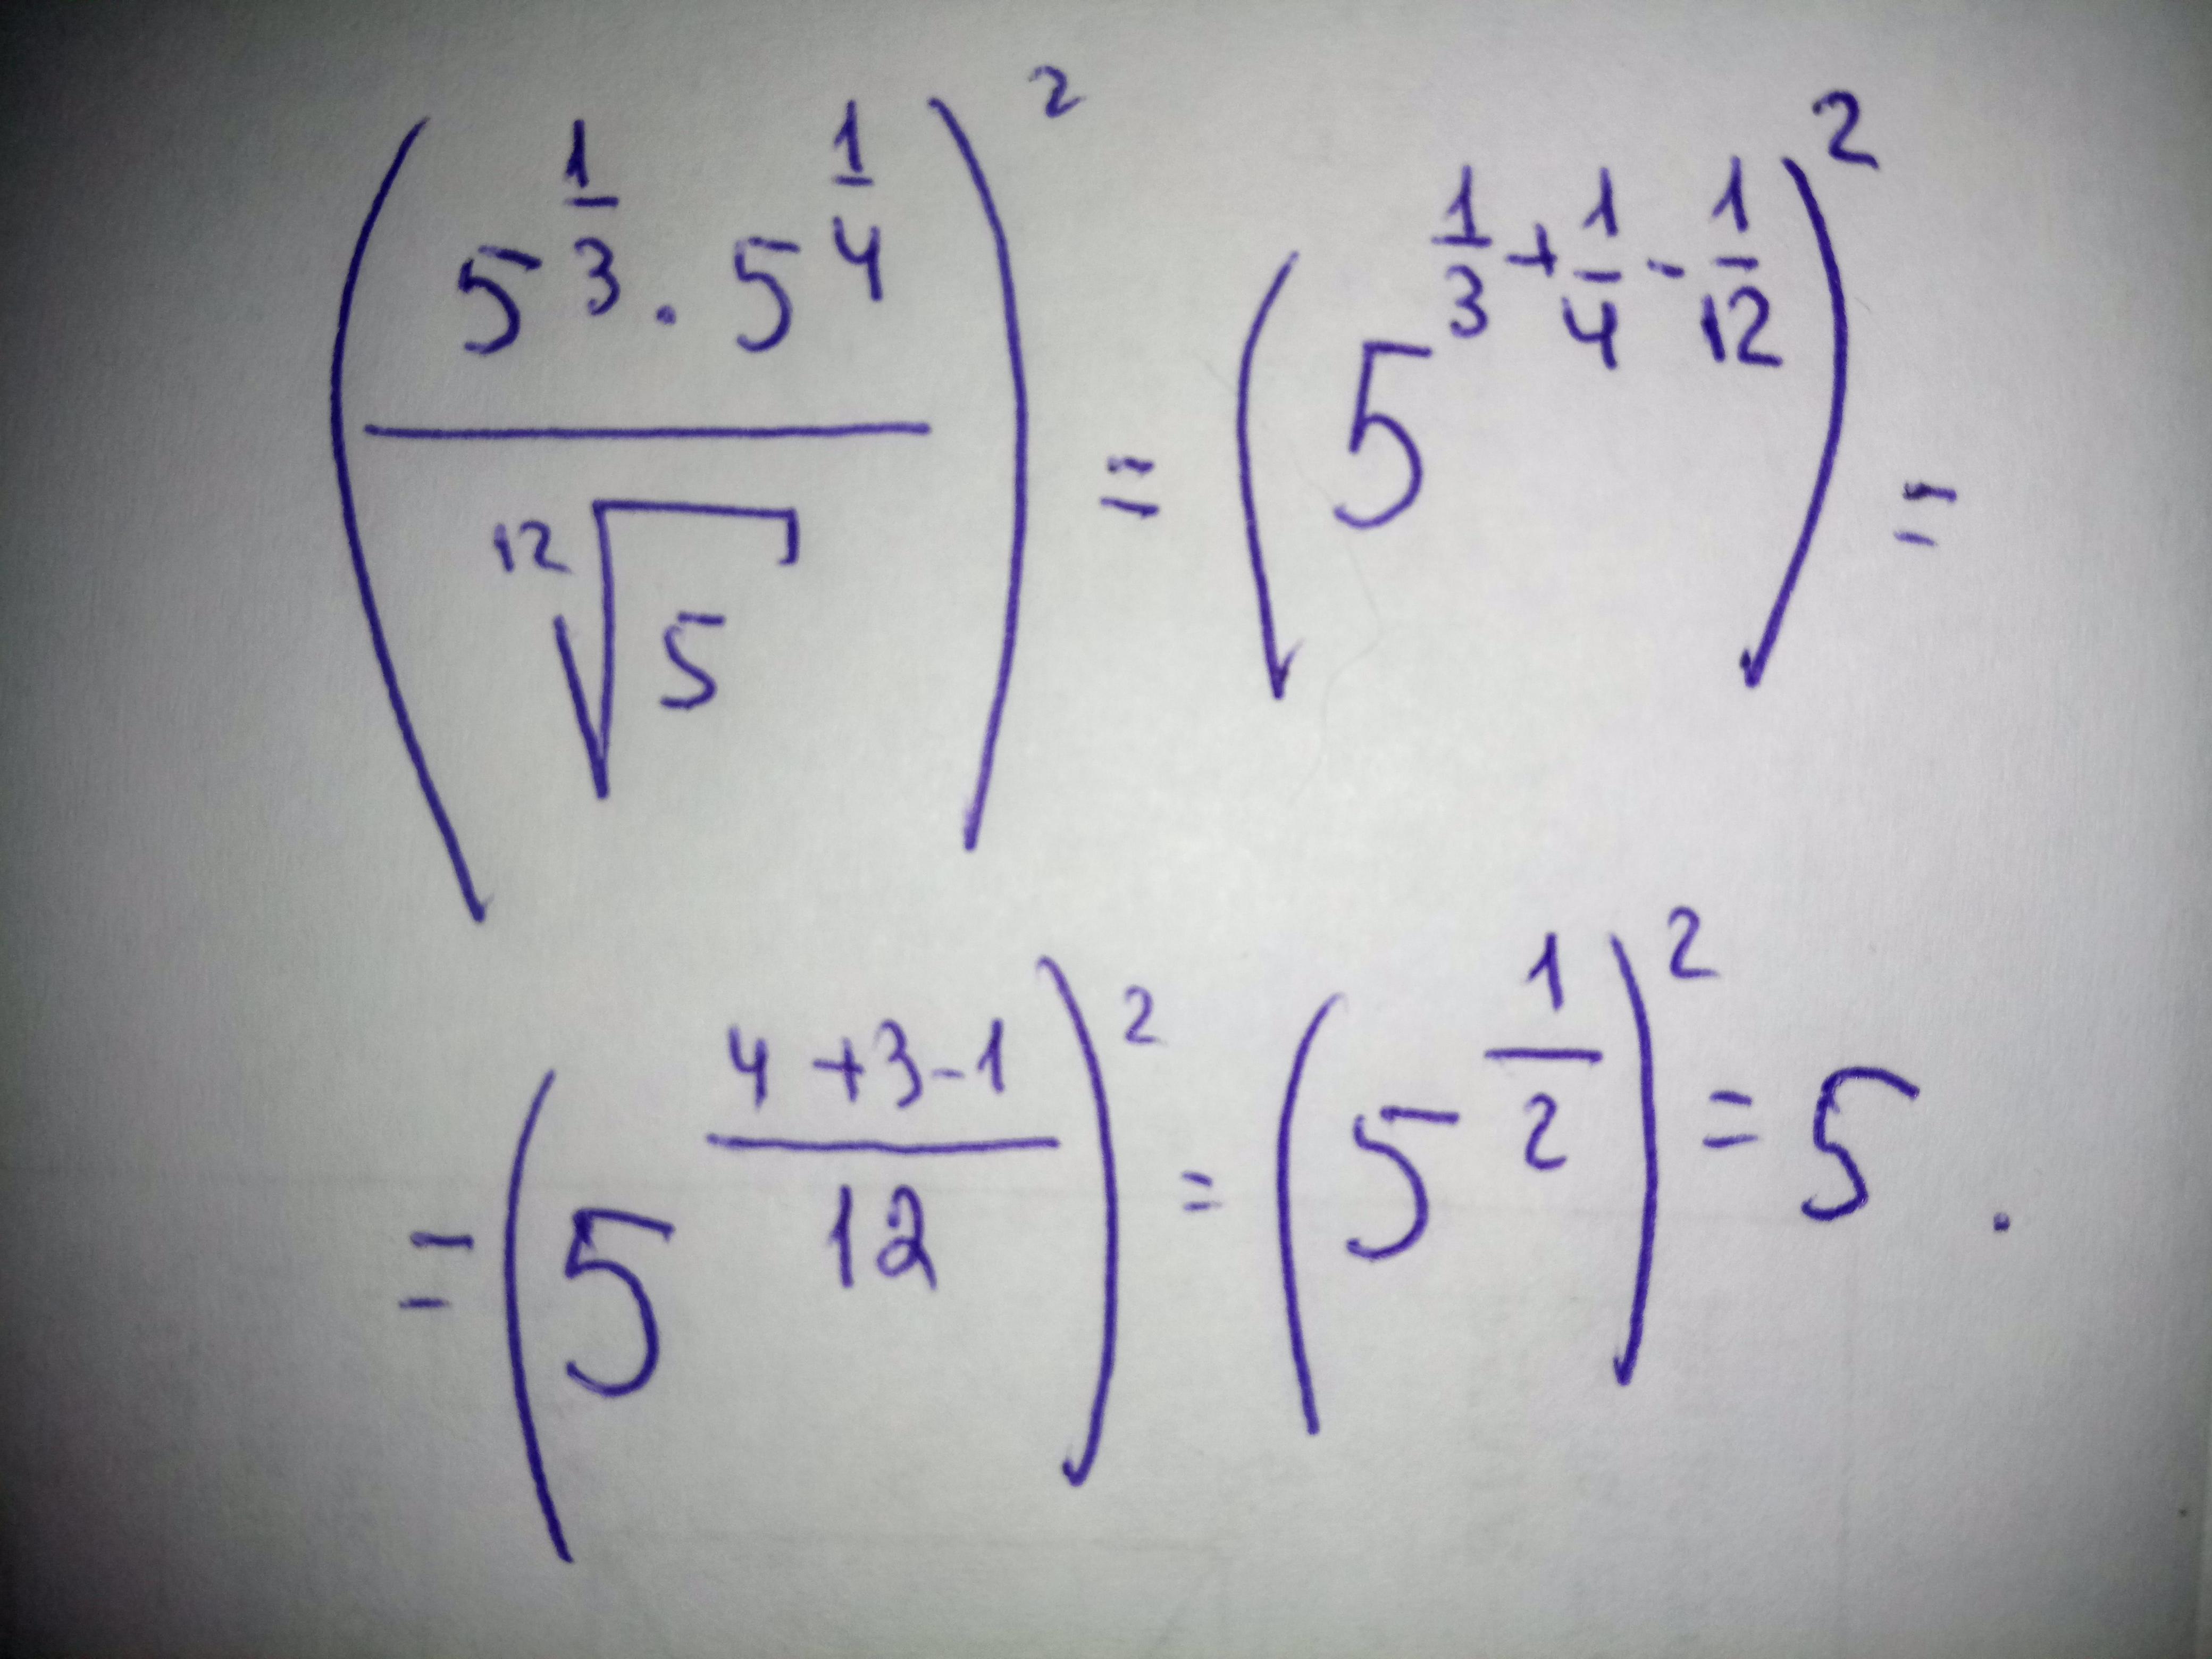 $\left(\frac{5^{\frac{1}{3}} \cdot 5^{\frac{1}{4}}}{\sqrt[12]{5}}\right)^2 = \left(5^{\frac{1}{3}+\frac{1}{4}-\frac{1}{12}}\right)^2 =$
$= \left(5^{\frac{4+3-1}{12}}\right)^2 = \left(5^{\frac{1}{2}}\right)^2 = 5.$